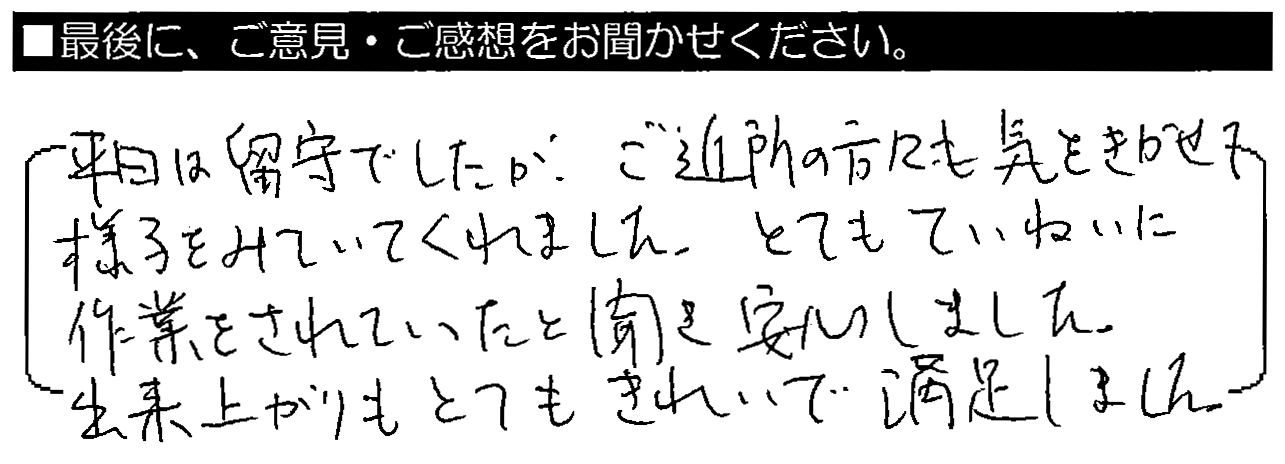 ■最後に、ご意見・ご感想をお聞かせください。
平日は留守でしたが、ご近所の方々も気をきかせて
様子をみていてくれました。とてもていねいに
作業をされていたと聞き安心しました。
出来上がりもとてもきれいで満足しました。